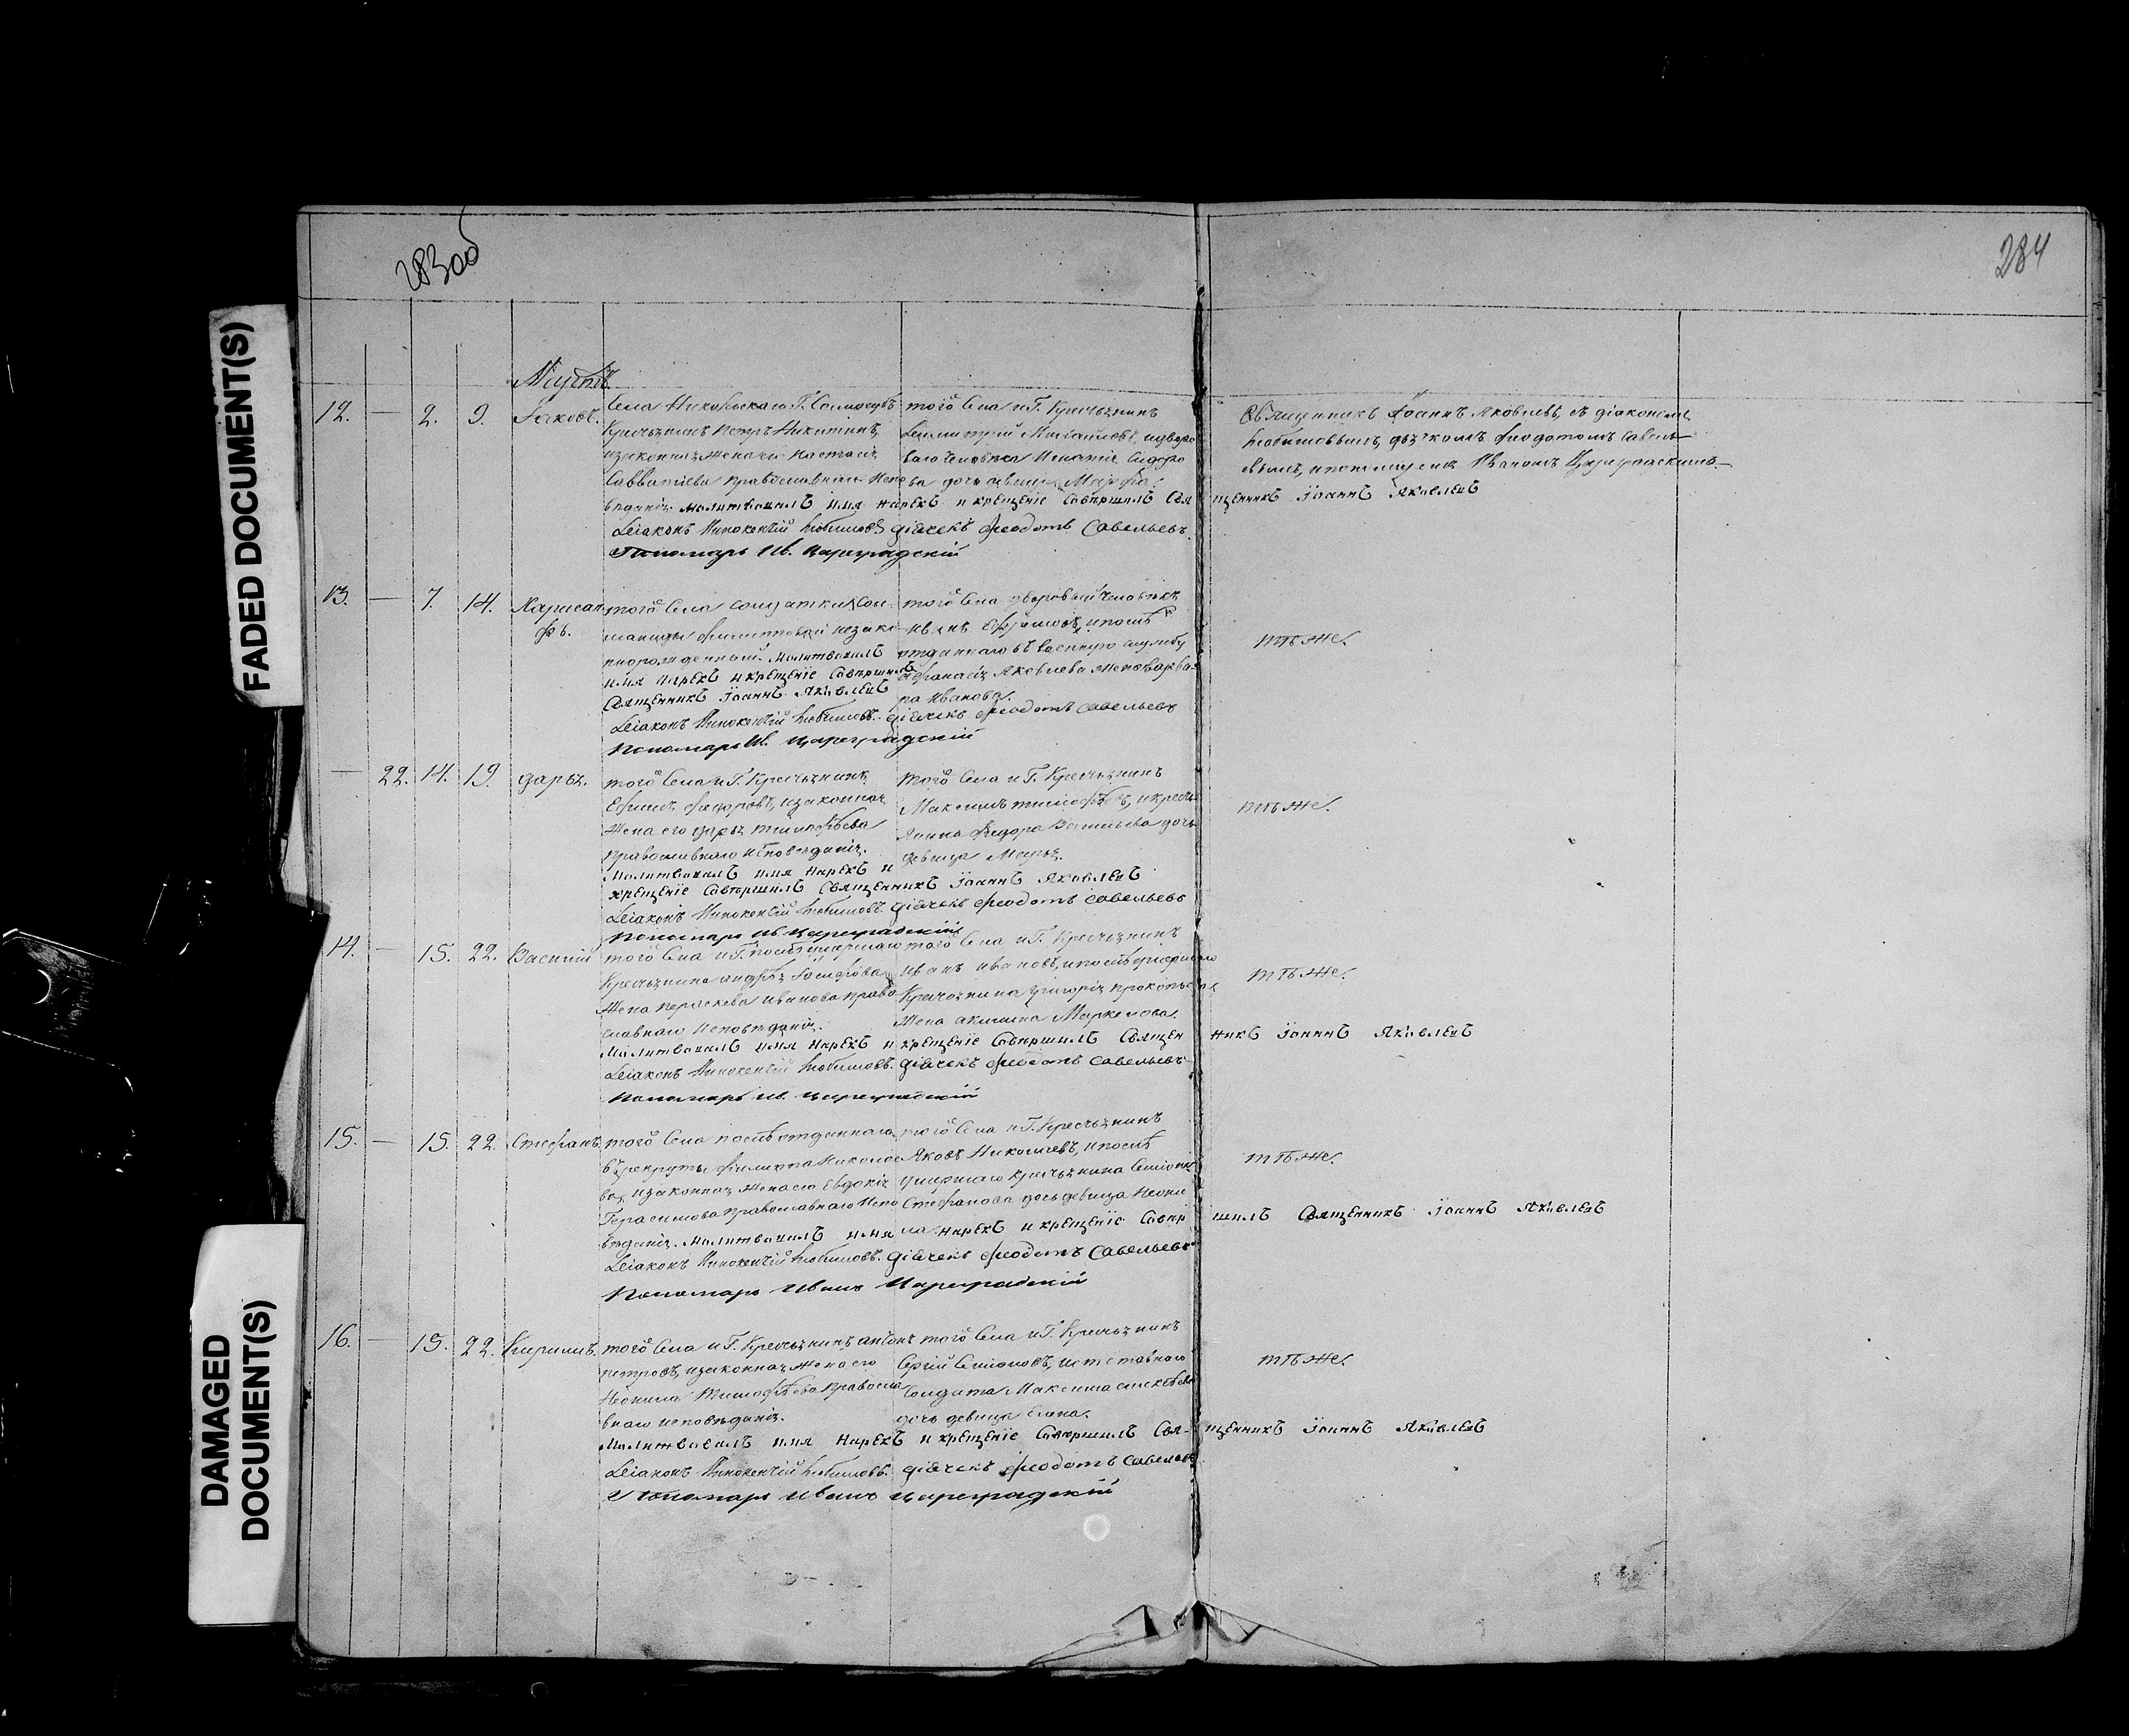 283об
284
FADED DOCUMENT(S)
DAMAGED DOCUMENT(S)
Мартъ.
12. — 2. 9. Іаковъ.
Села Никольскаго Г.
Крестьянинъ Петръ Никитинъ,
изаконная Жена его Настасія
Савватіева православнаго Испо
вѣданія. Молитвовалъ имя нарекъ и крещеніе Совершилъ Священникъ Іоаннъ Яковлевъ
Діаконъ Инокентій Любимовъ дiячекъ Феодотъ Савельевъ.
Пономарь Ив. Цареградскій
того Села и Г. Крестьянинъ
Димитрій Михайловъ, идворо
ваго Человѣка Игнатія Сидоро
ва дочь девица Марфа.
Священникъ Іоаннъ Яковлевъ, съ діакономъ
Любимовымъ, дьячкомъ Феодотомъ Савелье
вымъ, ипономаремъ Иваномъ Цареградскимъ.
13. — 7. 14. Харисан
фъ.
того Села солдатки Соло
маниды Филипповой незако
ннорожденный. Молитвовалъ
имя нарекъ и крещеніе Совершилъ
Священникъ Іоаннъ Яковлевъ
Діаконъ Инокентій Любимовъ. дiячекъ Феодотъ Савельевъ
Пономарь Ив. Цареградскій
того Села дворовый Человѣкъ
Иванъ Ефимовъ, ипослѣ
отданнаго въ военную службу
Афанасія Яковлева жена Варва
ра Иванова.
тѣже.
— 22. 14. 19. дарья.
того Села и Г. Крестьянинъ
Ефимъ Федоровъ, изаконная
Жена его дарья Тимофѣева
православнаго исповѣданія.
Молитвовалъ имя нарекъ и
крещеніе Совершилъ Священникъ Іоаннъ Яковлевъ
Діаконъ Инокентій Любимовъ. дiячекъ Феодотъ Савельевъ
Пономарь Ив. Цареградскій
того Села и Г. Крестьянинъ
Максимъ Тимофѣевъ, икресть
янина Федора Васильева дочь
девица Марья.
тѣже.
14. — 15. 22. Василій
того Села и Г. послѣ умершаго
Крестьянина андрѣя Іосифова
Жена Пераскева Иванова право
славнаго Исповѣданія.
Молитвовалъ имя нарекъ и крещеніе Совершилъ Священникъ Іоаннъ Яковлевъ
Діаконъ Инокентій Любимовъ. дiячекъ Феодотъ Савельевъ
Пономарь Ив. Цареградскій
того Села и Г. Крестьянинъ
Иванъ Ивановъ, ипослѣ умершаго
Крестьянина Григорія Прокопьева
Жена акилина Маркелова.
тѣже.
15. — 15. 22. Стефанъ.
того Села послѣ отданнаго
въ рекруты Филиппа Николае
ва, изаконная жена его Евдокія
Герасимова православнаго Испо
вѣданія. Молитвовалъ имя нарекъ и крещеніе Совершилъ Священникъ Іоаннъ Яковлевъ
Діаконъ Инокентій Любимовъ. дiячекъ Феодотъ Савельевъ
Пономарь Иванъ Цареградскій
того Села и Г. Крестьянинъ
Яковъ Николаевъ, ипослѣ
умершаго Крестьянина Симіона
Стефанова дочь девица Неони
ла.
тѣже.
16. — 15. 22. Кирилъ.
того Села и Г. Крестьянинъ антонъ
петровъ, изаконная Жена его
Неонила Тимофѣева Правосла
внаго исповѣданія.
Молитвовалъ имя нарекъ и крещеніе Совершилъ Священникъ Іоаннъ Яковлевъ
Діаконъ Инокентій Любимовъ. дiячекъ Феодотъ Савельевъ
Пономарь Иванъ Цареградскій
того Села и Г. Крестьянинъ
Сергій Симіоновъ, иотставнаго
Солдата Максима алексѣева
дочь девица Елена.
тѣже.